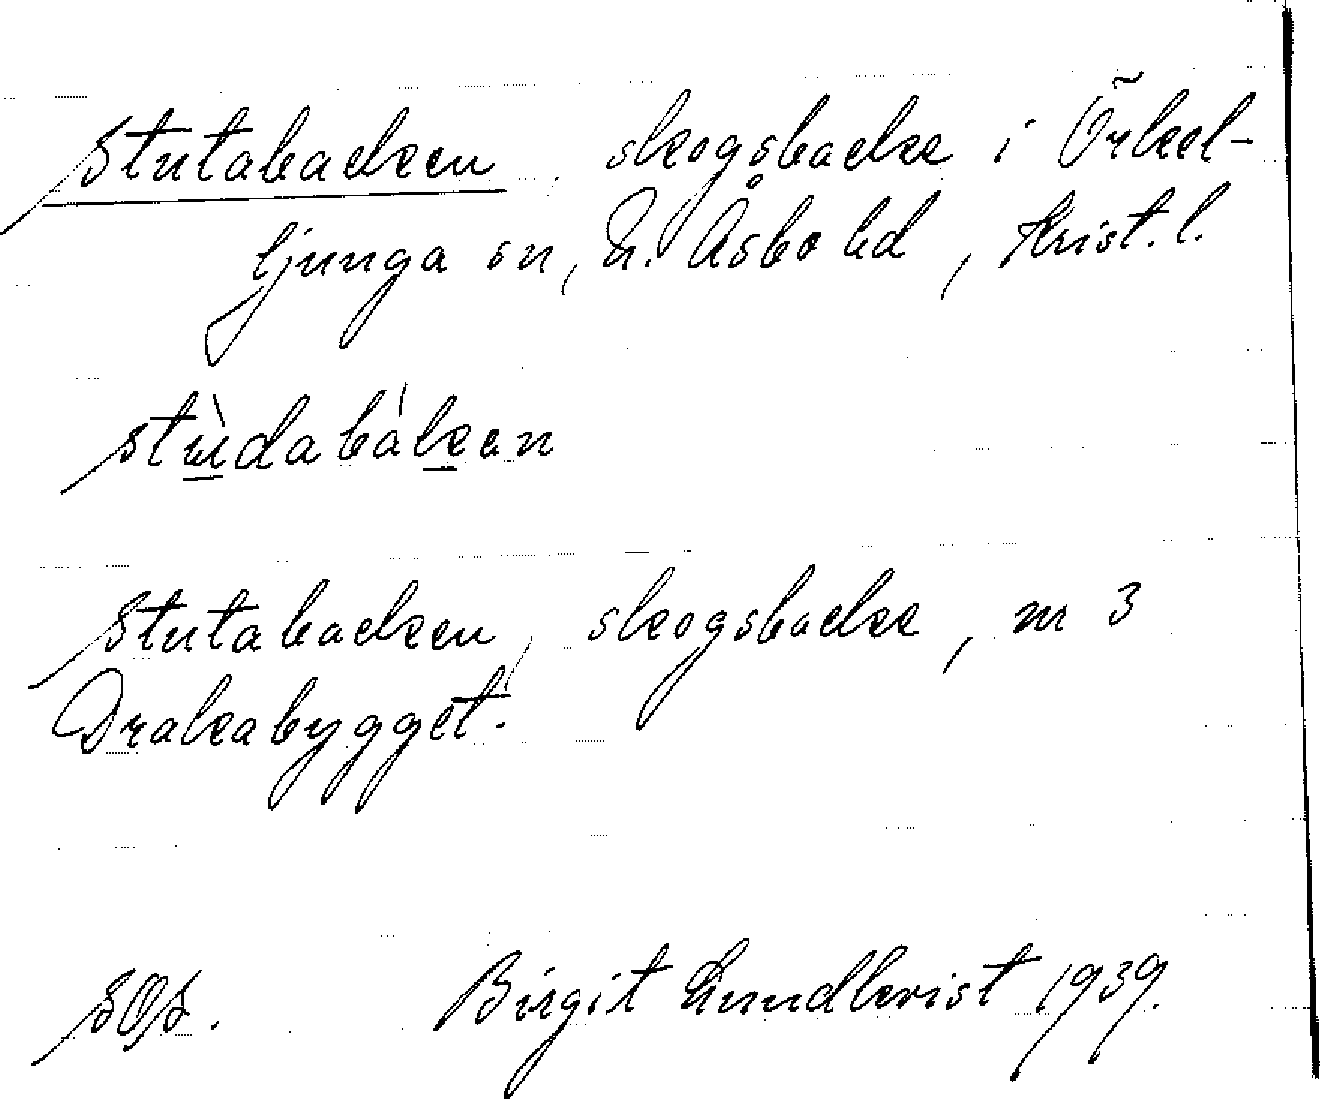 Stutabacken, skogsbacke i Örkel-
ljunga sn, N. Åsbo hd, Krist. l.
stùdabákan
Stutabacken, skogsbacke, nr 3
Drakabygget.
SOS. Birgit Lundkvist 1939.